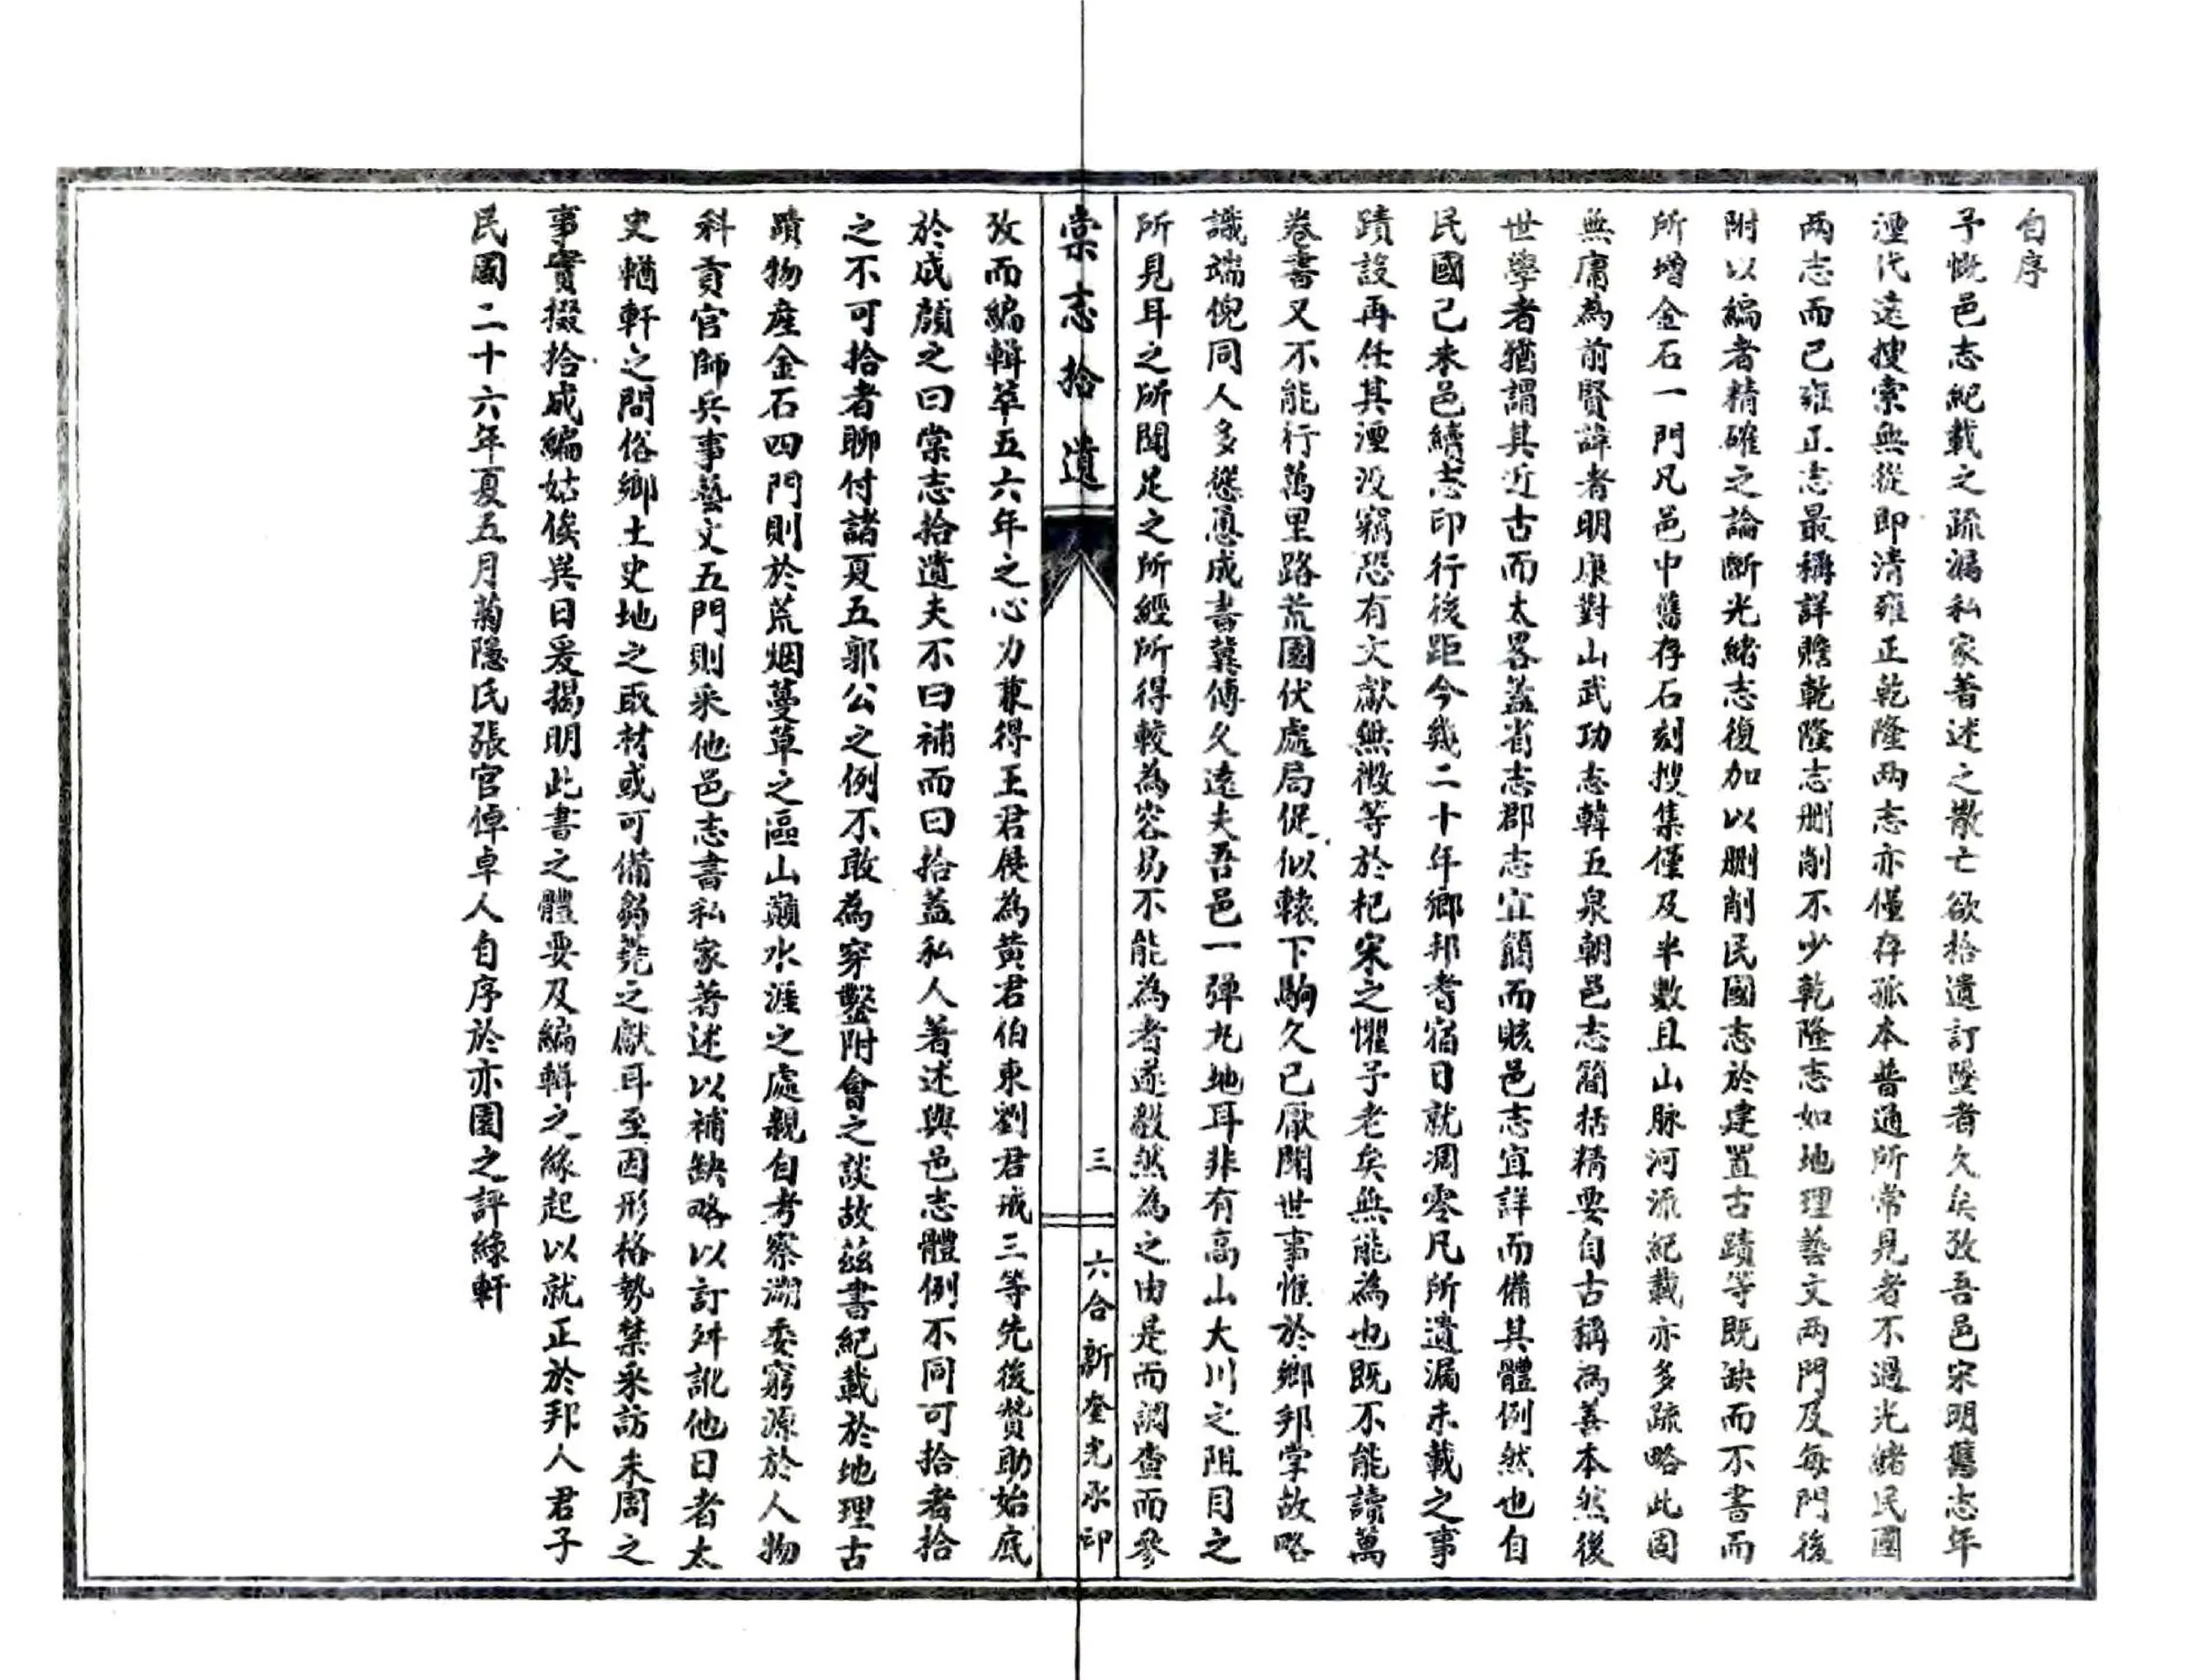 自序
予慨邑志紀載之疏漏私家著述之散亡欲拾遺訂墜者久矣攷吾邑宋明舊志年
湮代遠搜索無從即清雍正乾隆两志亦僅存孤本普通所常見者不過光緒民國
两志而已雍正志最稱詳贍乾隆志删削不少乾隆志如地理藝文两門及每門後
附以編者精確之論斷光緒志復加以删削民國志於建置古蹟等既缺而不書而
所增金石一門凡邑中舊存石刻搜集僅及半數且山脉河流紀載亦多疏略此固
無庸為前賢諱者明康對山武功志韓五泉朝邑志簡括精要自古稱為善本然後
世學者猶謂其近古而太畧蓋省志郡志宜簡而賅邑志宜詳而備其體例然也自
民國己未邑續志印行後距今幾二十年鄉邦耆宿日就凋零凡所遺漏未載之事
蹟設再任其湮没竊恐有文獻無徵等於杞宋之懼予老矣無能為也既不能讀萬
卷書又不能行萬里路荒園伏處局促似轅下駒久已厭聞世事惟於鄉邦掌故略
識端倪同人多慫恿成書冀傳久遠夫吾邑一彈丸地耳非有高山大川之阻目之
所見耳之所聞足之所經所得較為容易不能為者遂毅然為之由是而調查而參
棠志拾遺
三
六合新奎光承印
攷而編輯萃五六年之心力兼得王君俊為黄君伯東劉君戒三等先後贊助始底
於成顏之曰棠志拾遺夫不曰補而曰拾蓋私人著述與邑志體例不同可拾者拾
之不可拾者聊付諸夏五郭公之例不敢為穿鑿附會之談故茲書紀載於地理古
蹟物產金石四門則於荒烟蔓草之區山巔水涯之處親自考察溯委窮源於人物
科貢官師兵事藝文五門則采他邑志書私家著述以補缺略以訂舛訛他日者太
史輶軒之問俗鄉土史地之取材或可備芻蕘之獻耳至因形格勢禁采訪未周之
事實掇拾成編姑俟異日爰揭明此書之體要及編輯之緣起以就正於邦人君子
民國二十六年夏五月菊隱氏張官倬卓人自序於亦園之評綠軒